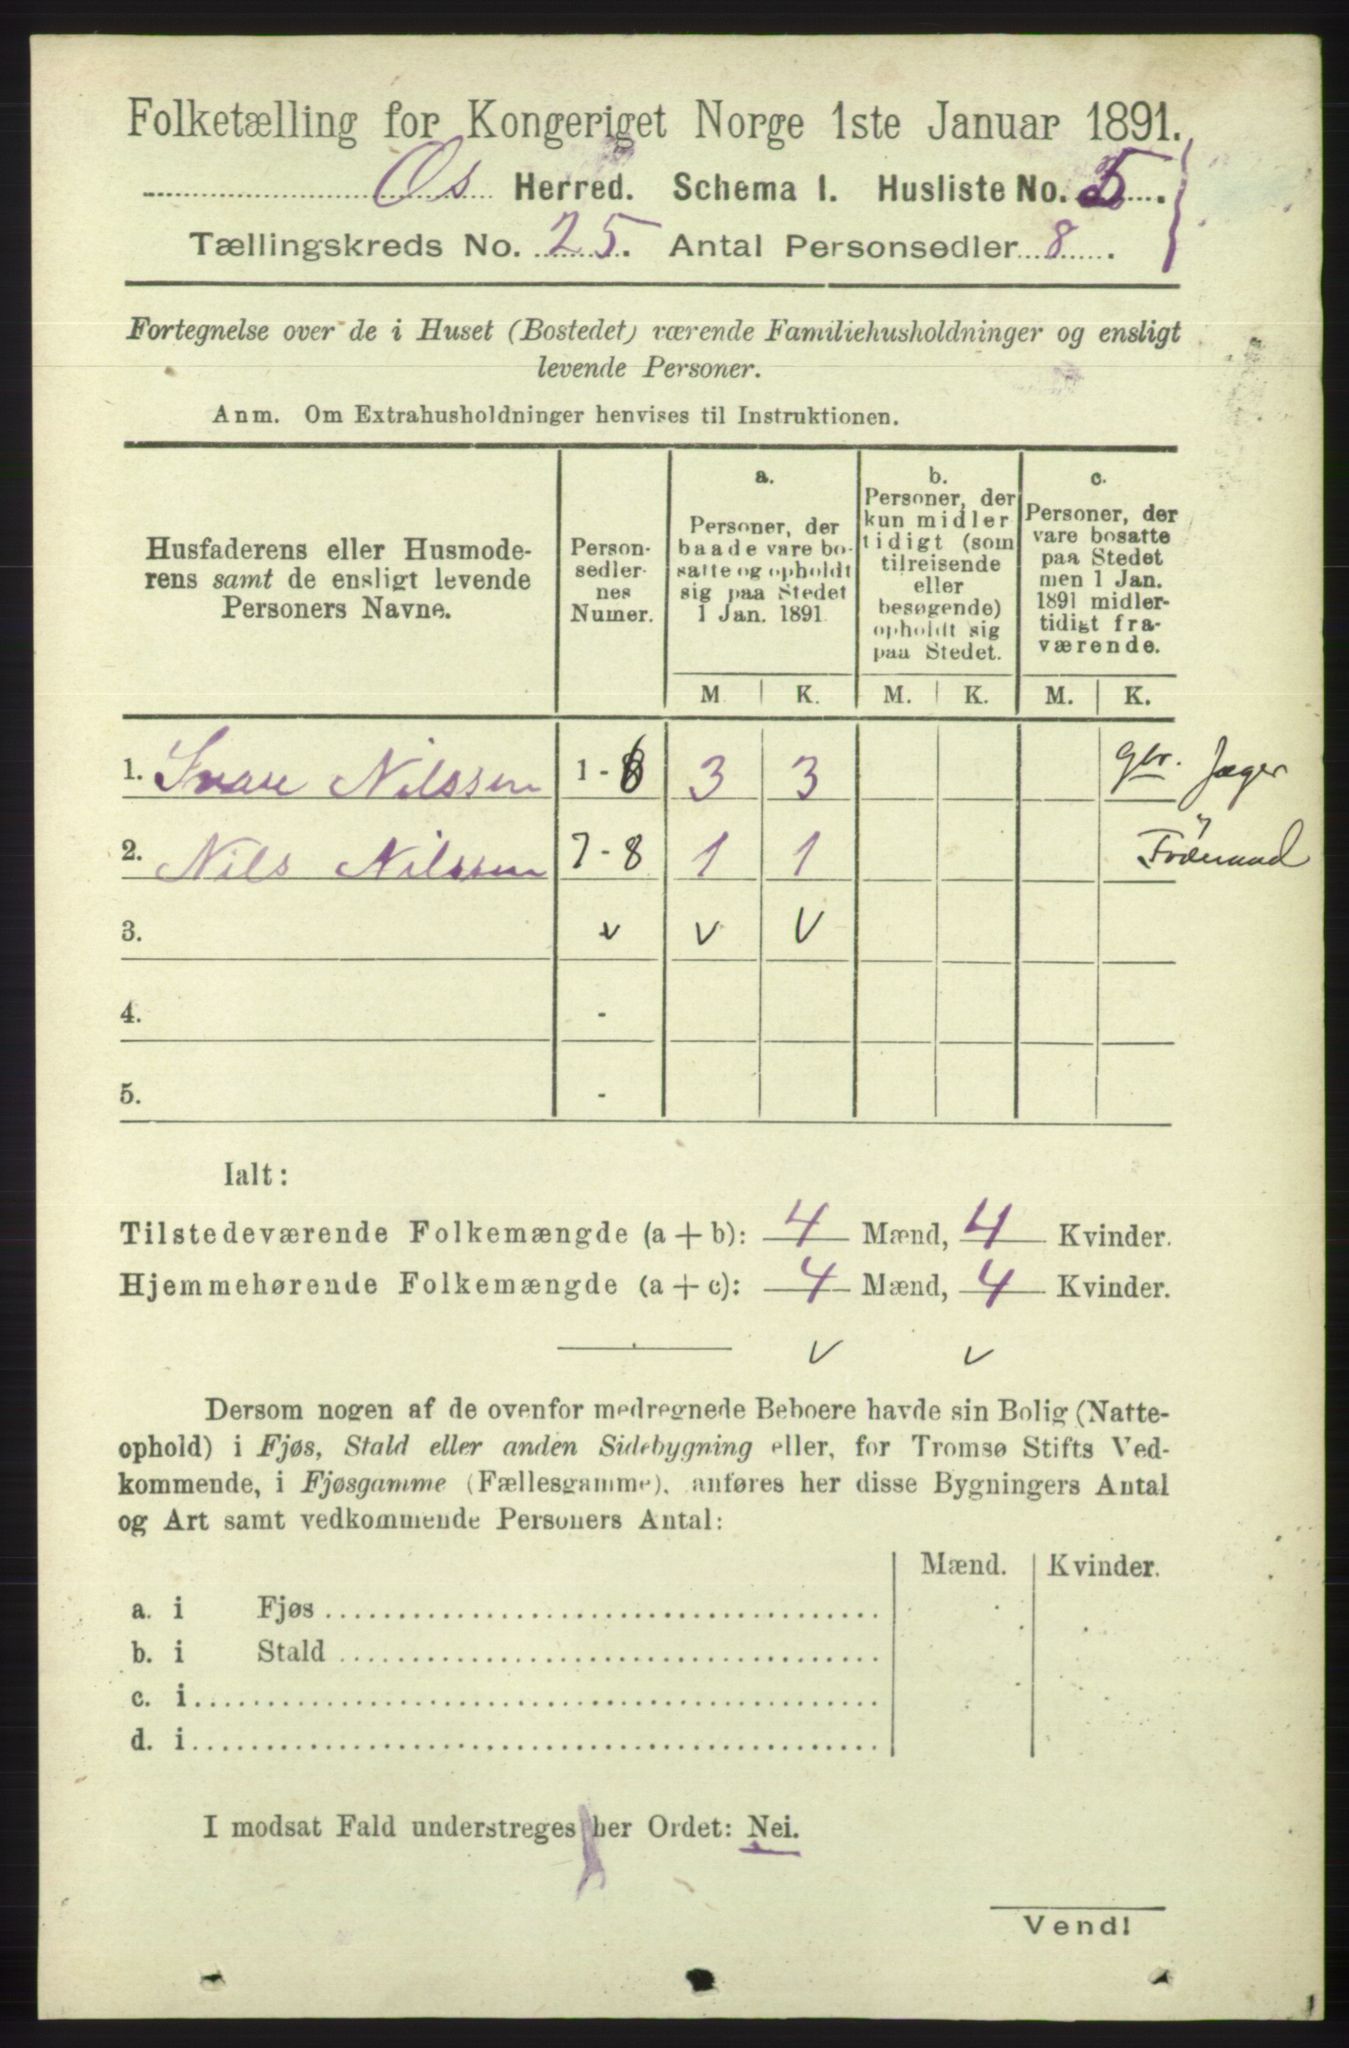 Folketælling for Kongeriget Norge 1ste Januar 1891.
Os Herred. Schema I. Husliste No. 5.
Tællingskreds No. 25. Antal Personsedler 8.
Fortegnelse over de i Huset (Bostedet) værende Familiehusholdninger og ensligt
levende Personer.
Anm. Om Extrahusholdninger henvises til Instruktionen.
Husfaderens eller Husmode-
rens samt de ensligt levende
Personers Navne.
Person-
sedler-
nes
Numer.
a.
Personer, der
baade vare bo-
satte og opholdt
sig paa Stedet
1 Jan. 1891
b.
Personer, der
kun midler
tidigt (som
tilreisende
eller
besøgende)
opholdt sig
paa Stedet.
c.
Personer, der
vare bosatte
paa Stedet
men 1 Jan.
1891 midler-
tidigt fra-
værende.
M K. M. K. M. K.
1. Nilssen 1 - 6 3 3 gbr. Jæger
2. Nils Nilssen 7 - 8 1 1 Föderaad
3. v v v
4. -
5. -
Ialt:
Tilstedeværende Folkemængde (a + b): 4 Mænd, 4 Kvinder.
Hjemmehørende Folkemængde (a + c): 4 Mænd, 4 Kvinder.
v v
Dersom nogen af de ovenfor medregnede Beboere havde sin Bolig (Natte-
ophold) i Fjøs, Stald eller anden Sidebygning eller, for Tromsø Stifts Ved-
kommende, i Fjøsgamme (Fællesgamme), anføres her disse Bygningers Antal
og Art samt vedkommende Personers Antal:
Mænd. Kvinder.
a. i Fjøs
b. i Stald
c. i
d. i
I modsat Fald understreges her Ordet: Nei.
Vend!